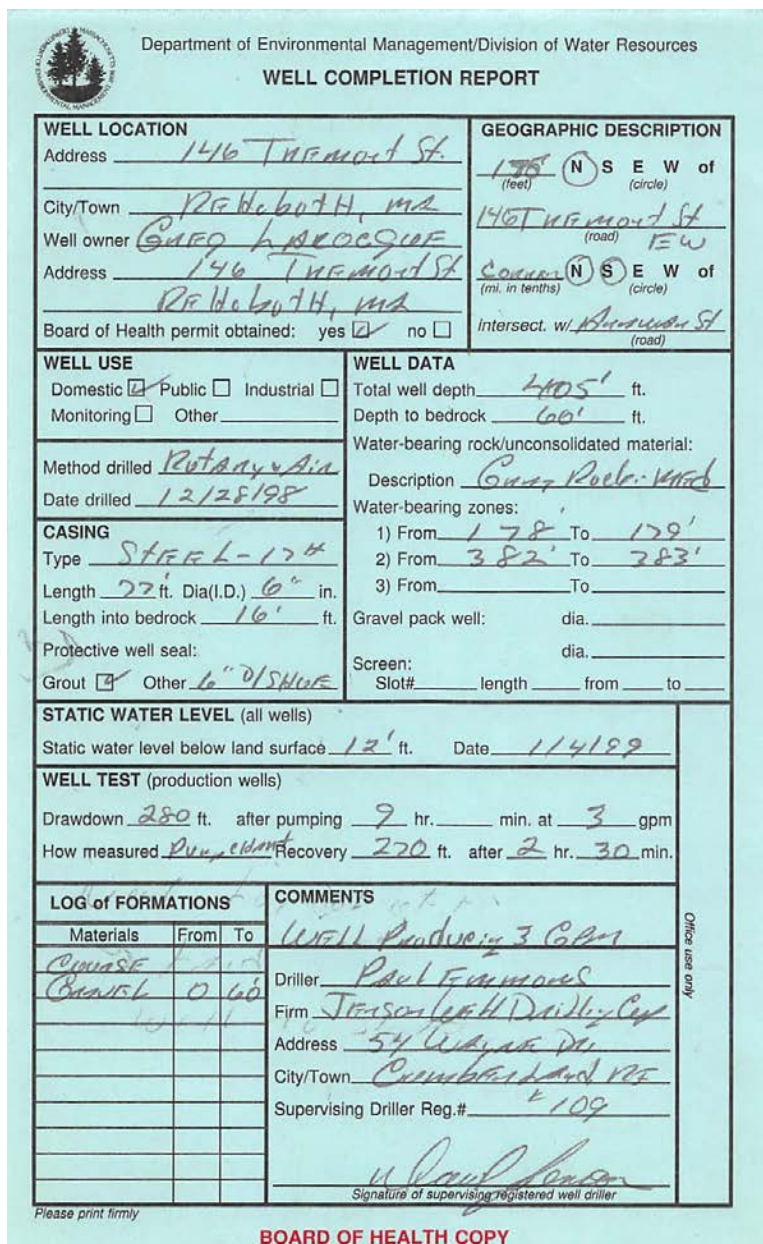 Department of Environmental Management/Division of Water Resources
WELL COMPLETION REPORT
WELL LOCATION
Address 146 Tremont St.
City/Town Rehoboth, MA
Well owner Greg Larocque
Address 146 Tremont St
Rehoboth, MA
Board of Health permit obtained: yes ☑ no ☐
GEOGRAPHIC DESCRIPTION
N S E W of
(feet) (circle)
146 Tremont St
(road) EW
Corner N S E W of
(mi. in tenths) (circle)
Intersect. w/ St
(road)
WELL USE
Domestic ☑ Public ☐ Industrial ☐
Monitoring ☐ Other
Method drilled Rotary & Air
Date drilled 12/28/98
CASING
Type STEEL - 17#
Length 77 ft. Dia(I.D.) 6" in.
Length into bedrock 16' ft.
Protective well seal:
Grout ☑ Other 6" D/SHOE
WELL DATA
Total well depth 405' ft.
Depth to bedrock 60' ft.
Water-bearing rock/unconsolidated material:
Description Gray Rock - Med
Water-bearing zones:
1) From 178 To 179'
2) From 382' To 383'
3) From To
Gravel pack well: dia.
dia.
Screen:
Slot# length from to
STATIC WATER LEVEL (all wells)
Static water level below land surface 12' ft. Date 1/4/99
WELL TEST (production wells)
Drawdown 280 ft. after pumping 9 hr. min. at 3 gpm
How measured Recovery 270 ft. after 2 hr. 30 min.
LOG of FORMATIONS
Materials From To
Course
Gravel 0 60
COMMENTS
Well Producing 3 GPM
Driller Paul Emmons
Firm Jenson Well Drilling Corp
Address 54 Wayne Dr.
City/Town Cumberland, RI
Supervising Driller Reg.# #109
Signature of supervising registered well driller
Office use only
Please print firmly
BOARD OF HEALTH COPY